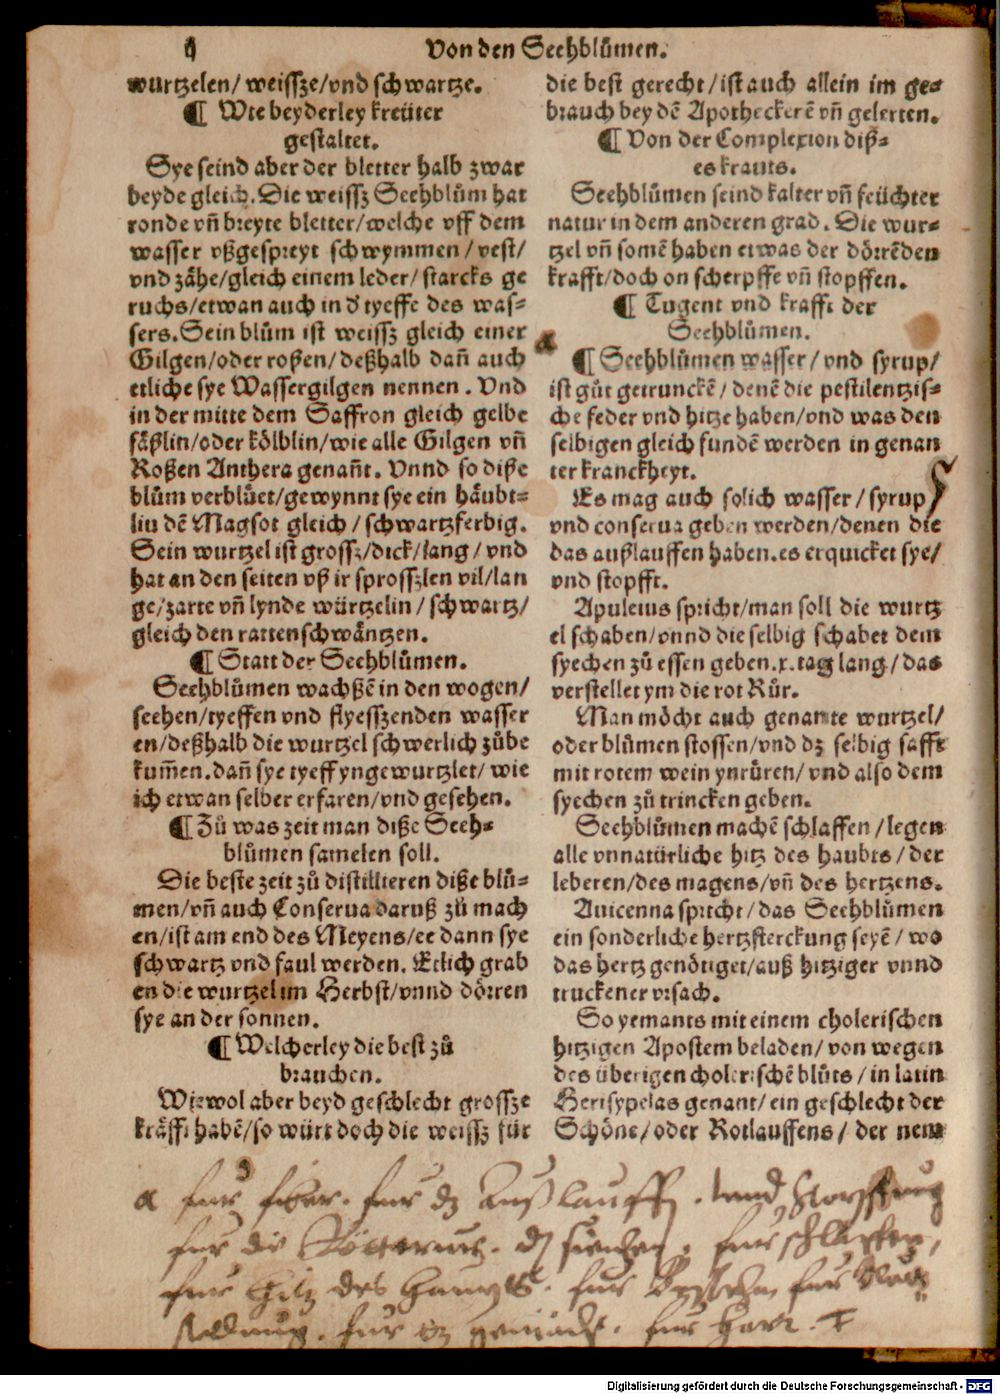 Von den Seehblůmen.
wurtzelen/ weissze/vnd schwartze.
¶ Wie beyderley kreüter
gestaltet.
Sye seind aber der bletter halb zwar
beyde gleich. Die weissz Seehblům hat
ronde vñ breyte bletter/welche vff dem
wasser vßgespreyt schwymmen/vest/
vnd zähe/gleich einem leder/starcks ge
ruchs/etwan auch in d' tyeffe des was=
sers. Sein blům ist weissz gleich einer
Gilgen/oder roßen/deßhalb dañ auch
etliche sye Wassergilgen nennen. Vnd
in der mitte dem Saffron gleich gelbe
fäßlin/oder kölblin/wie alle Gilgen vñ
Roßen Anthera genañt. Vnnd so diße
blům verblůet/gewynnt sye ein häubt=
lin dẽ Magsot gleich/schwartzferbig.
Sein wurtzel ist grossz/dick/lang/vnd
hat an den seiten vß ir sprosszlen vil/lan
ge/zarte vñ lynde würtzelin/schwartz/
gleich den rattenschwäntzen.
¶ Statt der Seehblůmen.
Seehblůmen wachßẽ in den wogen/
seehen/tyeffen vnd flyesszenden wasser
en/deßhalb die wurtzel schwerlich zůbe
kum̃en. dañ sye tyeff yngewurtzlet/wie
ich etwan selber erfaren/vnd gesehen.
¶ Zů was zeit man diße Seeh=
blůmen samelen soll.
Die beste zeit zů distillieren diße blů=
men/vñ auch Conserua daruß zů mach
en/ist am end des Meyens/ee dann sye
schwartz vnd faul werden. Etlich grab
en die wurtzel im Herbst/vnnd dörren
sye an der sonnen.
¶ Welcherley die best zů
brauchen.
Wiewol aber beyd geschlecht grossze
kräfft habẽ/so würt doch die weissz für
die best gerecht/ist auch allein im ge=
brauch bey dẽ Apotheckerẽ vñ gelerten.
¶ Von der Complexion diß=
es krauts.
Seehblůmen seind kalter vñ feüchter
natur in dem anderen grad. Die wur=
tzel vñ somẽ haben etwas der dörrẽden
krafft/doch on scherpffe vñ stopffen.
¶ Tugent vnd krafft der
Seehblůmen.
a
¶ Seehblůmen wasser/vnd syrup/
ist gůt getrunckẽ/denẽ die pestilentzis=
che feber vnd hitze haben/vnd was den
selbigen gleich fundẽ werden in genan
ter kranckheyt.
Es mag auch solich wasser/syrup
vnd conserua geben werden/denen die
das außlauffen haben. es erquicket sye/
vnd stopfft.
Apuleius spricht/man soll die wurtz
el schaben/vnnd die selbig schabet dem
syechen zů essen geben.x.tag lang/das
verstellet ym die rot Růr.
Man möcht auch genante wurtzel/
oder blůmen stossen/vnd dz selbig safft
mit rotem wein ynrüren/vnd also dem
syechen zů trincken geben.
Seehblůmen machẽ schlaffen/legen
alle vnnatürliche hitz des haubts/der
leberen/des magens/vñ des hertzens.
Auicenna spricht/das Seehblůmen
ein sonderliche hertzsterckung seyẽ/wo
das hertz genötiget/auß hitziger vnnd
truckener vrsach.
So yemants mit einem cholerischen
hitzigen Apostem beladen/von wegen
des überigen cholerischẽ blůts/in latin
Herisypelas genant/ein geschlecht der
Schöne/oder Rotlauffens/der nem
a fur fiber. fur dz Außlauffen.
fur die
fur hitz des haupts. fur
fur
Digitalisierung gefördert durch die Deutsche Forschungsgemeinschaft - DFG